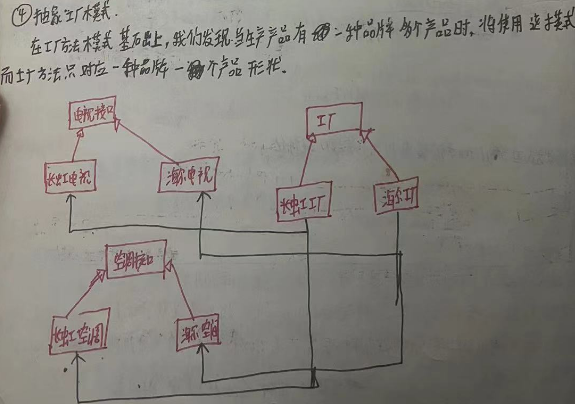 ④ 抽象工厂模式.
在工厂方法模式基础上,我们发现当生产产品有一种品牌多个产品时,将使用这才模式
而工厂方法只对应一种品牌一个产品形状.
电视接口
工厂
长虹电视
海尔电视
长虹工厂
海尔工厂
空调接口
长虹空调
海尔空调